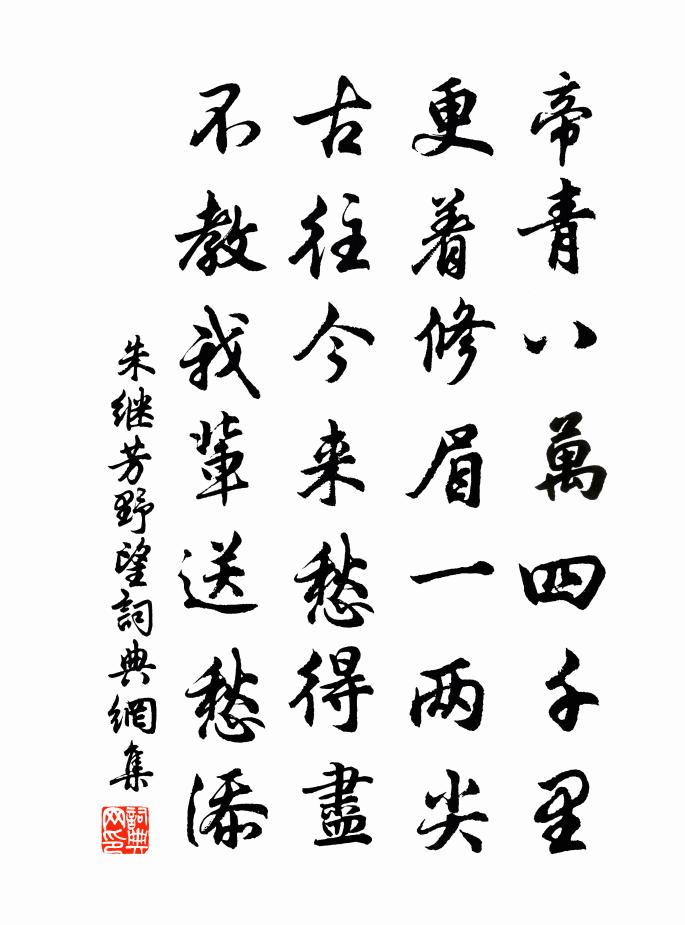 帝青八萬四千里
更着修眉一两尖
古往今来愁得盡
不教我輩送愁添
朱继芳野望詞典網集
詞典网印